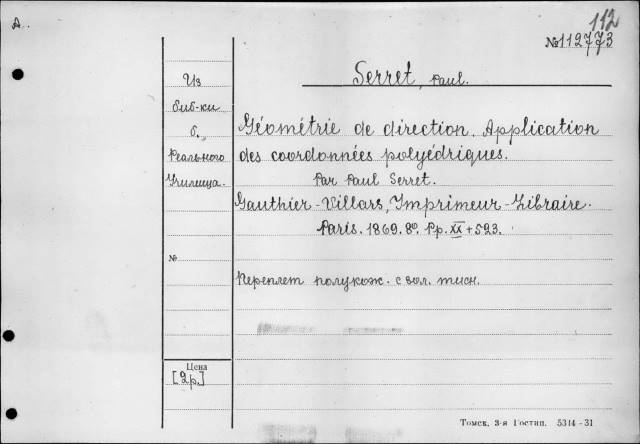 112
А.
№112773
Serret, Paul.
Из
биб-ки
б.
Реального
Училища.
Géométrie de direction. Application
des coordonnées polyédriques.
Par Paul Serret.
Gauthier-Villars, Imprimeur-Libraire.
Paris. 1869. 8º. Pp. XX + 523.
№
Переплет полукож. с зол. тисн.
Цена
[2р.]
Томск. 3-я Гостип. 5314-31